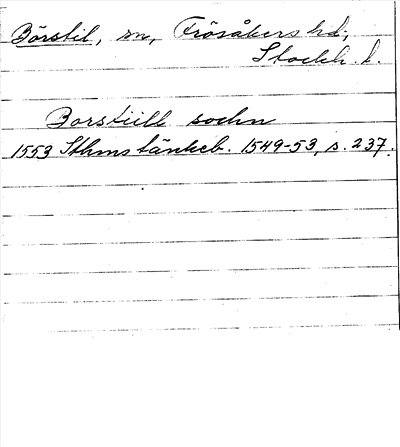 Börstil, sn, Frösåkers hd,
Stockh. l.
Borstiill sochn
1553 Sthms tänkeb. 1549-53, s. 237.